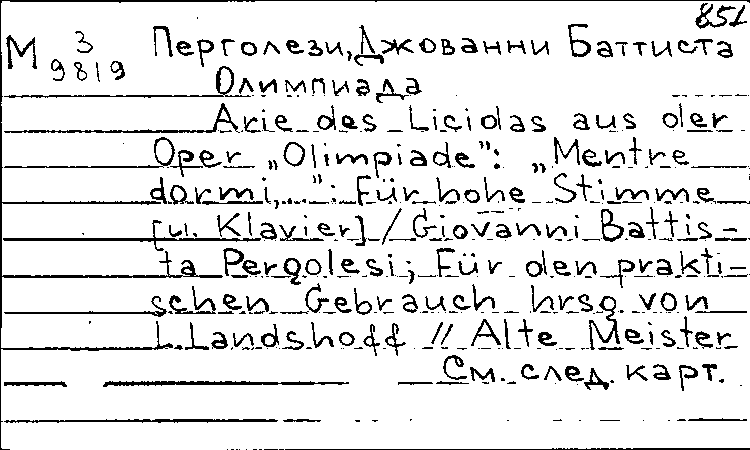 851
М 3 Перголези, Джованни Баттиста
9819 Олимпиада
Arie des Licidas aus der
Oper „Olimpiade": „Mentre
dormi,...": Für hohe Stimme
[u. Klavier] / Giovanni Battis-
ta Pergolesi; Für den prakti-
schen Gebrauch hrsg. von
L. Landshoff // Alte Meister
См. след. карт.